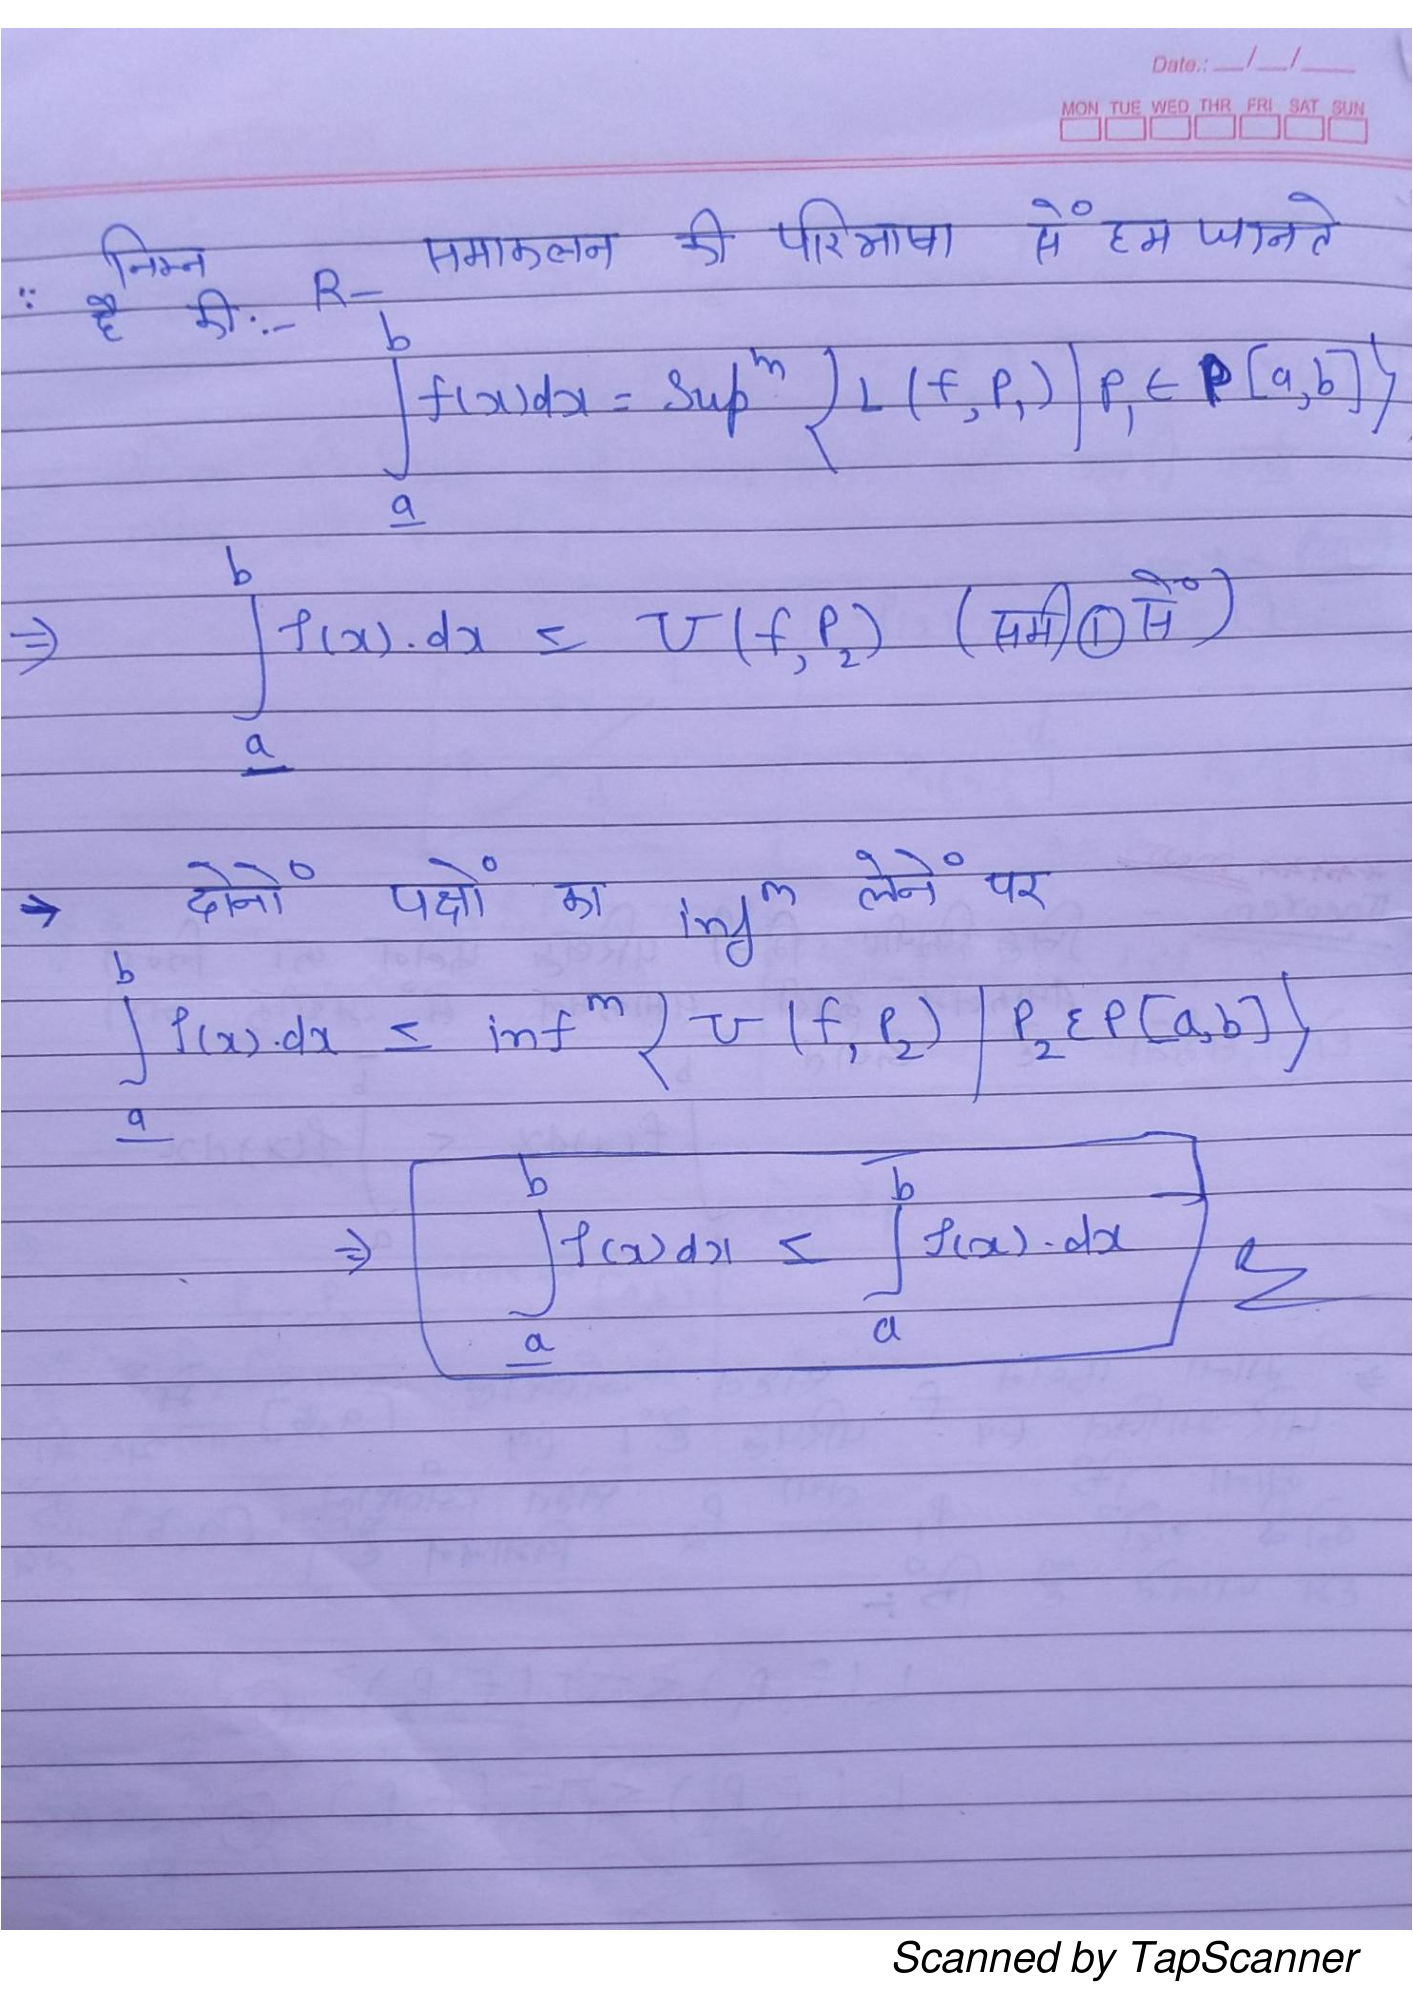 Date.: __/__/____
MON TUE WED THR FRI SAT SUN
∵ निम्न R- समाकलन की परिभाषा सें हम जानते
है की:-
∫_a̲^b f(x)dx = Sup^m {L(f,P₁) | P₁ ∈ P[a,b]}
⇒ ∫_a̲^b f(x).dx ≤ U(f,P₂) (समी ① सें)
→ दोनों पक्षों का inf^m लेनें पर
∫_a̲^b f(x).dx ≤ inf^m {U(f,P₂) | P₂ ε P[a,b]}
⇒ ∫_a̲^b f(x)dx ≤ ∫_a^b̅ f(x).dx
Scanned by TapScanner